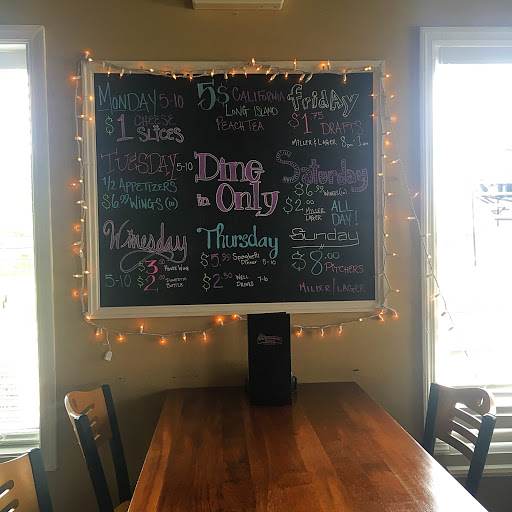 MONDAY 5-10
$1 CHEESE
SLICES
5$ CALIFORNIA
LONG ISLAND
PEACH TEA
friday
$1.75
DRAFTS
MILLER & LAGER
TUESDAY 5-10
1/2 APPETIZERS
$6.99 WINGS (10)
Dine
in Only
Saturday
$6.99 WINGS (10)
$2.00 MILLER
LAGER
ALL
DAY!
Winesday
$3 HOUSE WINE
5-10 $2 BOTTLE
Thursday
$5.99 SPAGHETTI
DINNER 5-10
$2.50 WELL
DRINKS
Sunday
$8.00
PITCHERS
MILLER/LAGER